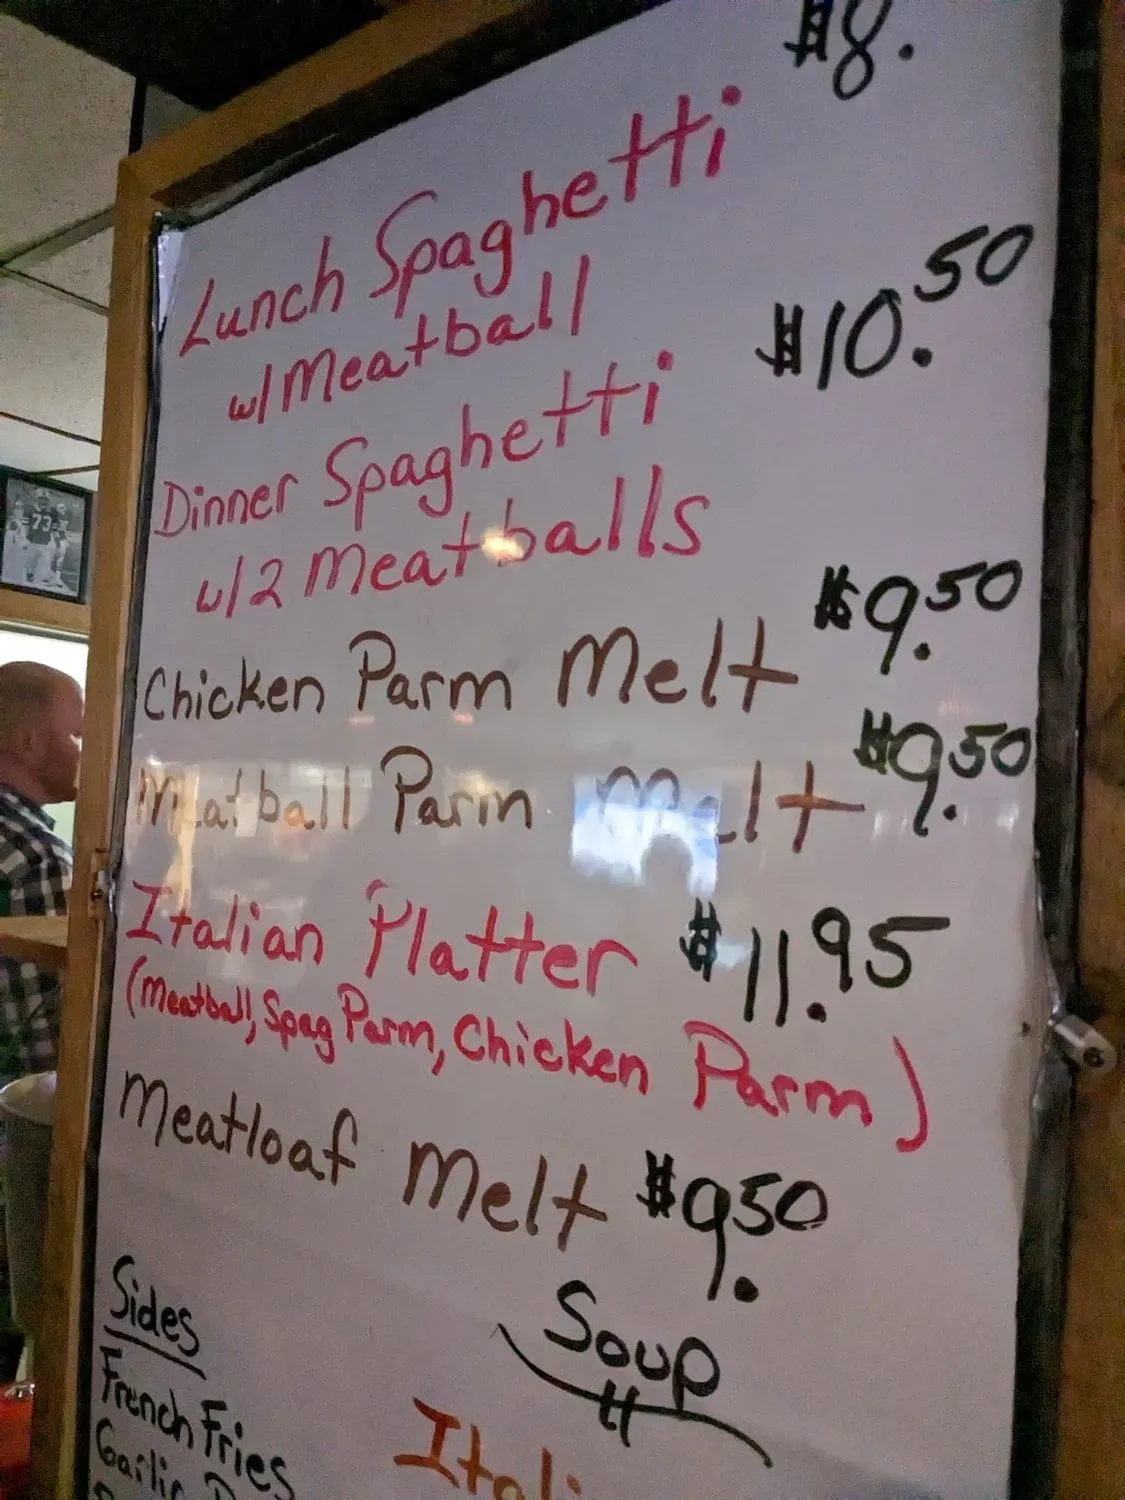 $8.
Lunch Spaghetti
w/Meatball
$10.50
Dinner Spaghetti
w/2 Meatballs
Chicken Parm Melt $9.50
Meatball Parm Melt $9.50
Italian Platter $11.95
(Meatball, Spag Parm, Chicken Parm)
Meatloaf Melt $9.50
Sides
Soup
French Fries
Garlic
73